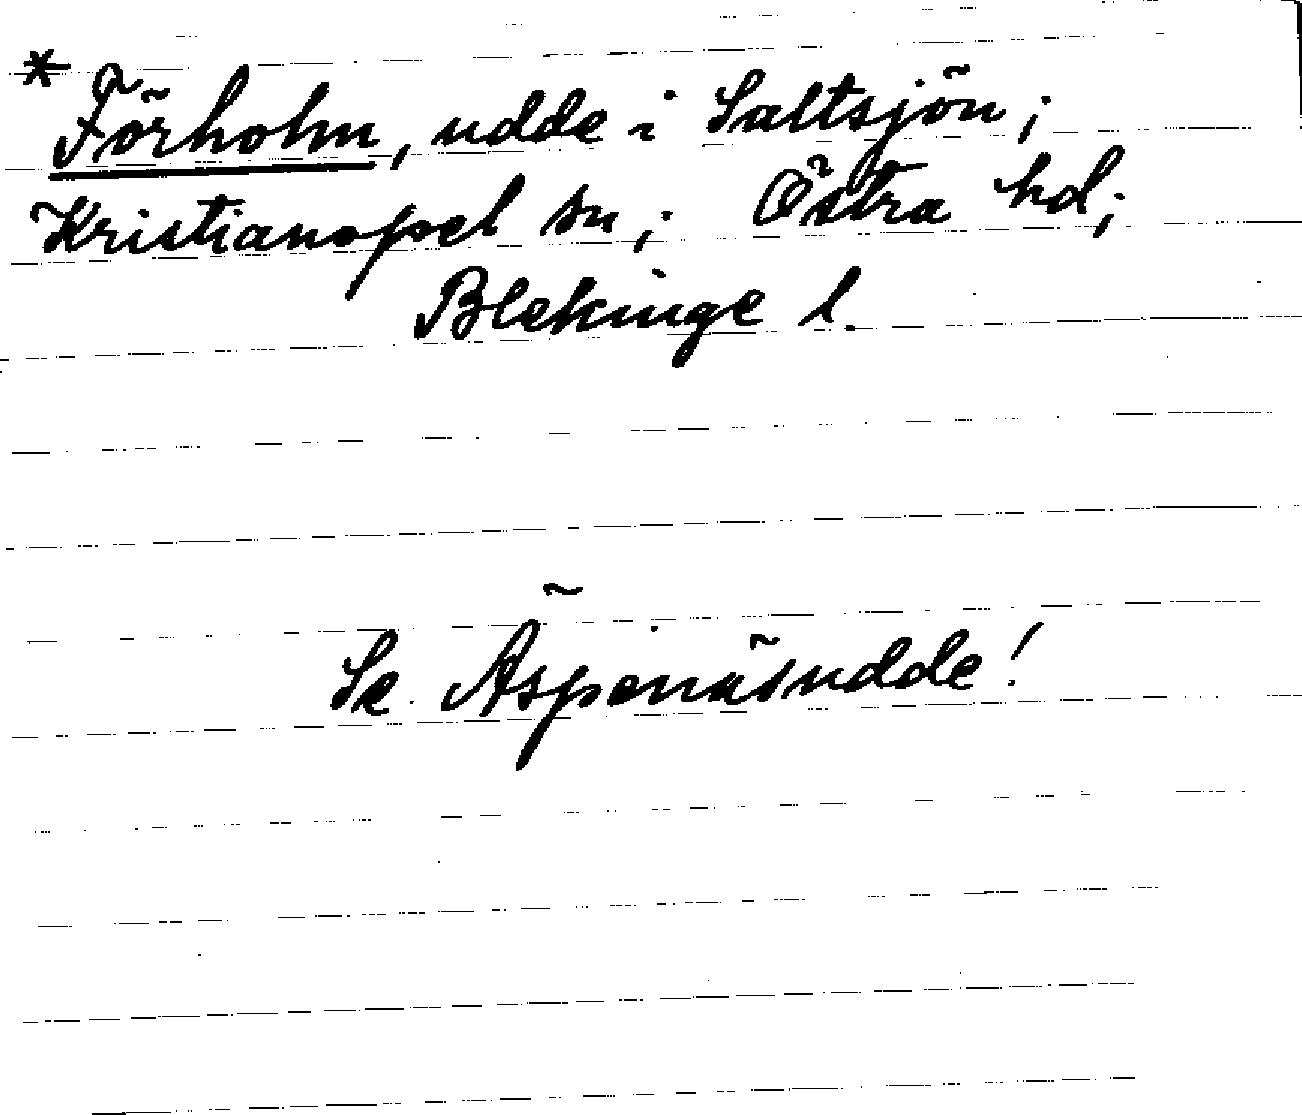 * Förholm, udde i Saltsjön;
Kristianopel sn; Östra hd;
Blekinge l.
Se Äspenäsudde!